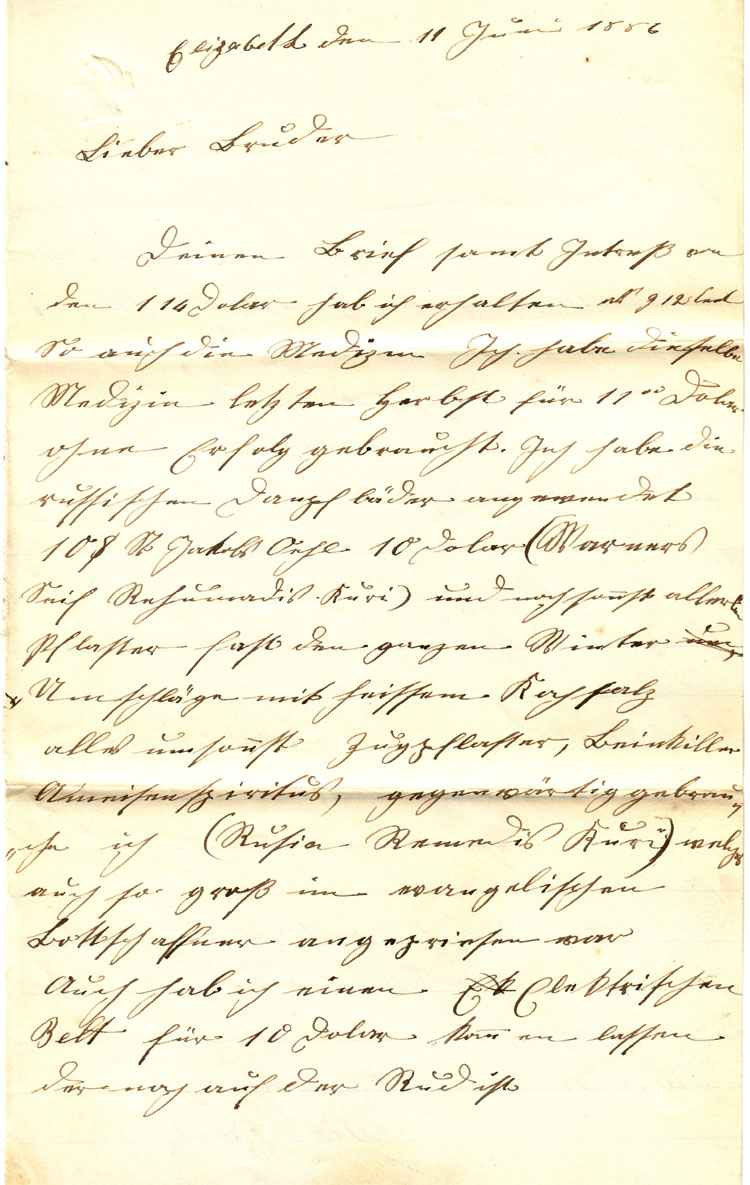 Elizabeth den 11 Juni 1886
Lieber Bruder
Deinen Brief samt Intreß von
den 114 Dolar hab ich erhalten als 9 12 Cent
So auch die Medizin Ich habe dieselbe
Medizin letzten Herbst für 11 00 Dolar
ohne Erfolg gebraucht. Ich habe die
russischen Danpfbäder angewendet
10$ St Jakobs Oehl 10 Dolar (Warners
Seif Rehumadis Kuri) und noch sonst allerlei
Pflaster fast den ganzen Winter
Umschläge mit heissem Kochsalz
alles umsonst Zugpflaster, Beinkiller
Ameisenspiritus, gegenwärtig gebrau„
„che ich (Rusia Remedis Kuri) welche
auch so groß im evangelischen
Bottschaffner angepriesen war
Auch hab ich einen Elektrischen
Belt für 10 Dolar kommen lassen
der noch auf der Rud ist